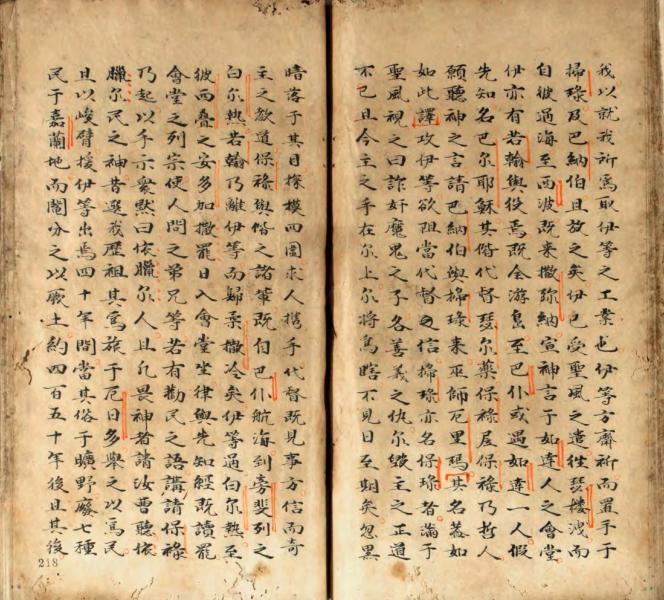 我以就我祈爲取伊等之工業也伊等方齋祈而置手于
掃琭及巴納伯且放之矣伊已受聖風之遣徃瑟樓洩而
自彼過海至西波既来撒彌納宣神言于如達人之會堂
伊亦有若翰與役焉既全游島至巴仆或遇如達一人假
先知名巴尔耶穌其偕代督瑟尔藥保祿居保祿乃哲人
願聽神之言請巴納伯與掃琭来巫師厄里瑪其名葢如
如此譯攻伊等欲阻當代督之信掃琭亦名保琭者滿于
聖風視之曰詐奸魔鬼之子各善義之仇尔變主之正道
不已且今主之手在尔上尔將爲瞎不見日至期矣忽黑
暗落于其目探模四圍求人携手代督既見事方信而奇
主之教道保祿與偕之諸輩既自巴仆航海到旁斐列之
白尔熱若翰乃離伊等而歸柔撒冷矣伊等過白尔熱至
彼西疊之安多加撒罷日入會堂坐律與先知經既讀罷
會堂之列宗使人問之弟兄等若有勸民之語講請保祿
乃起以手示衆默曰依臘尔人且凡畏神者請汝曹聽依
臘尔民之神昔選我歷祖其爲旅于厄日多舉之以爲民
且以峻臂援伊等出焉四十年間當其俗于曠野廢七種
民于嘉蘭地而鬮分之以厥土約四百五十年後且其後
218